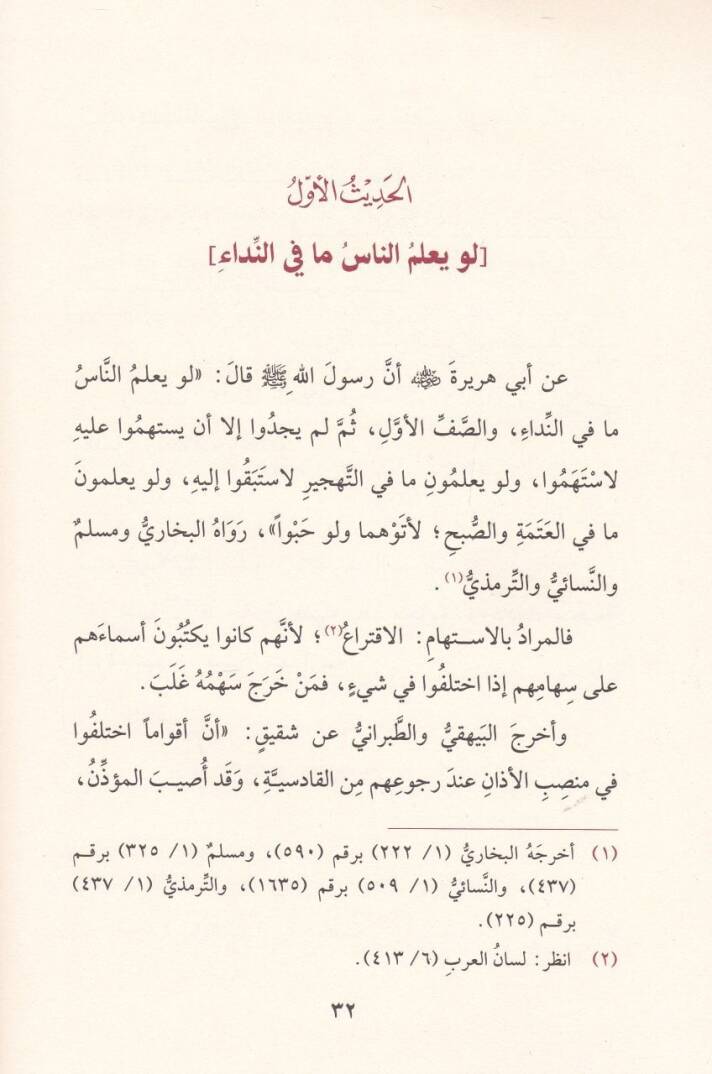 الحَدِيْثُ الأوّلُ
[لو يعلمُ الناسُ ما في النِّداءِ]
عن أبي هريرةَ ﵁ أنَّ رسولَ اللهِ ﷺ قالَ: «لو يعلمُ النَّاسُ
ما في النِّداءِ، والصَّفِّ الأوَّلِ، ثُمَّ لم يجدُوا إلا أن يستهمُوا عليهِ
لاسْتَهَمُوا، ولو يعلمُونِ ما في التَّهجيرِ لاستَبَقُوا إليهِ، ولو يعلمونَ
ما في العَتَمَةِ والصُّبحِ؛ لأتَوْهما ولو حَبْواً»، رَوَاهُ البخاريُّ ومسلمٌ
والنَّسائيُّ والتِّرمذيُّ(١).
فالمرادُ بالاستهامِ: الاقتراعُ(٢)؛ لأنَّهم كانوا يكتُبُونَ أسماءَهم
على سِهامِهم إذا اختلفُوا في شيءٍ، فمَنْ خَرَجَ سَهْمُهُ غَلَبَ.
وأخرجَ البَيهقيُّ والطَّبرانيُّ عن شقيقٍ: «أنَّ أقواماً اختلفُوا
في منصِبِ الأذانِ عندَ رجوعِهم مِن القادسيَّةِ، وَقَد أُصيبَ المؤذِّنُ،
(١) أخرجَهُ البخاريُّ (١/ ٢٢٢) برقم (٥٩٠)، ومسلمٌ (١/ ٣٢٥) برقم
(٤٣٧)، والنَّسائيُّ (١/ ٥٠٩) برقم (١٦٣٥)، والتِّرمذيُّ (١/ ٤٣٧)
برقم (٢٢٥).
(٢) انظر: لسانُ العربِ (٦/ ٤١٣).
٣٢